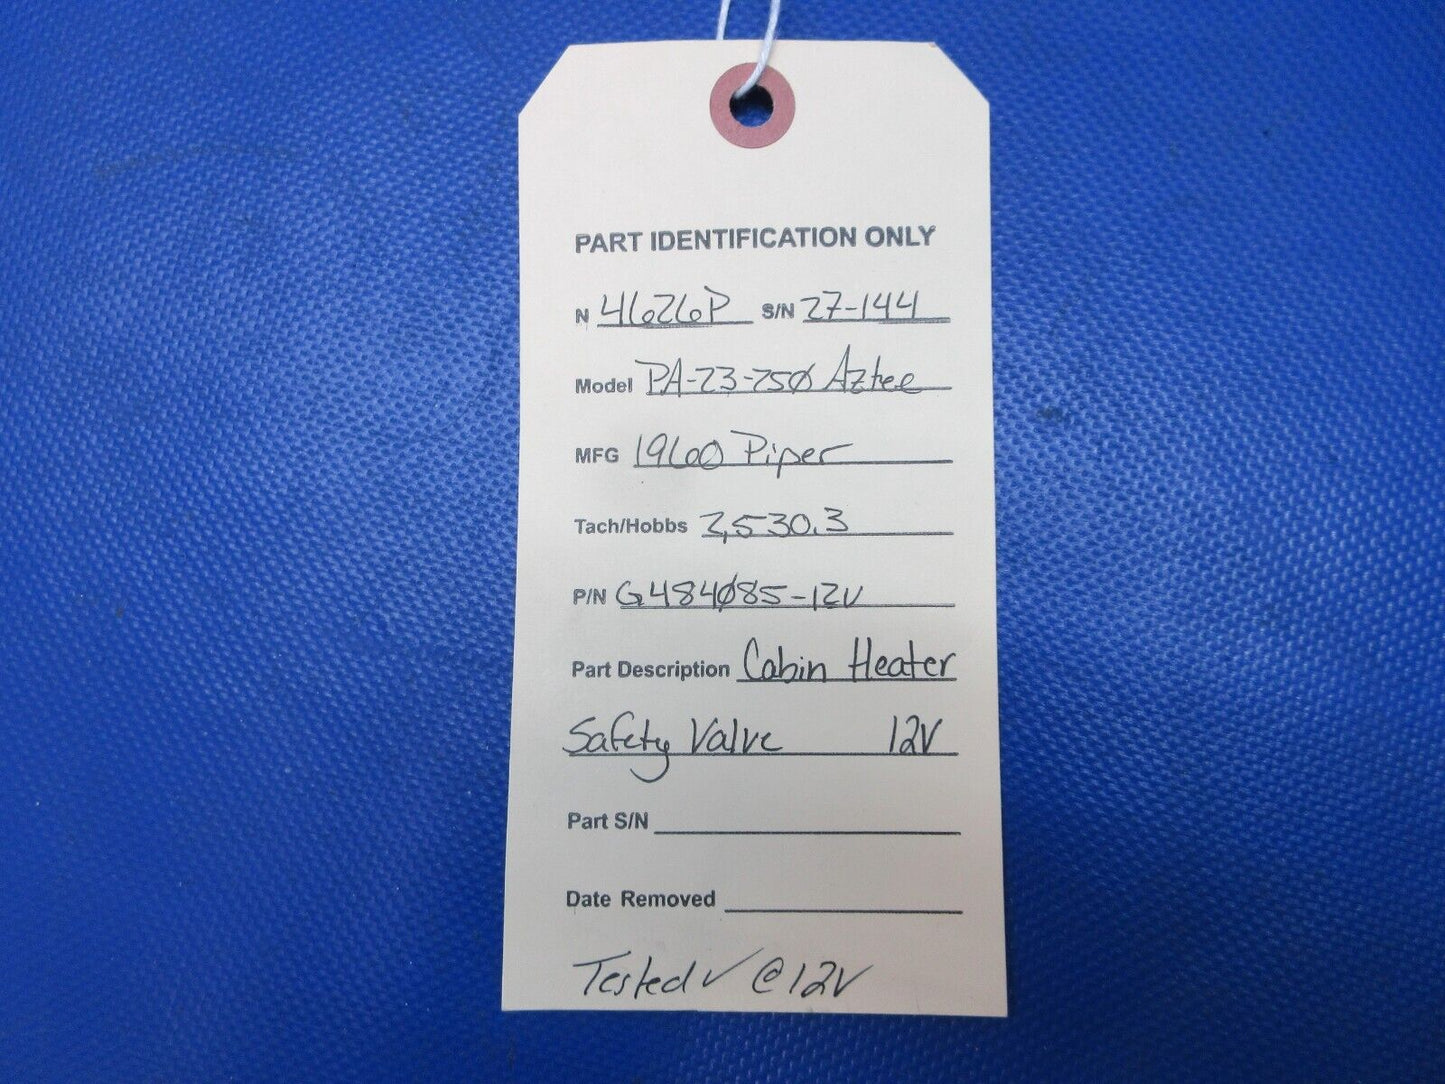 PART IDENTIFICATION ONLY
N 4626P S/N 27-144
Model PA-23-250 Aztec
MFG 1960 Piper
Tach/Hobbs 2,530.3
P/N G484085-12V
Part Description Cabin Heater
Safety Valve 12V
Part S/N
Date Removed
Tested ✓ @ 12V